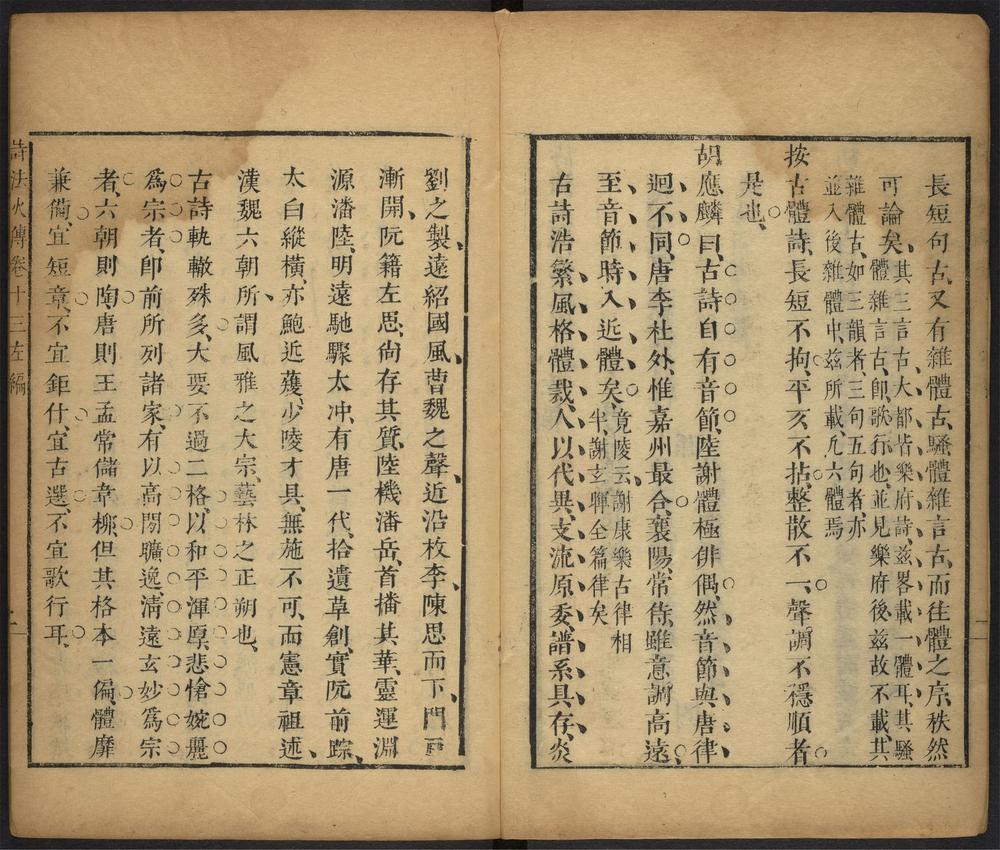 長短句古、又有雜體古、騷體雜言古、而往體之序、秩然
可論矣、其三言古、大都皆樂府詩、茲畧載一體耳、其騷
體雜言古、即歌行也、並見樂府後、茲故不載、其
雜體古、如三韻者、三句五句者、亦
並入後雜體中、茲所載、凢六體焉
按古體詩、長短不拘、平亥不拈、整散不一、聲調不穩順者
是也、
胡應麟曰、古詩自有音節、陸謝體極俳偶、然音節與唐律
迥不同、唐李杜外、惟嘉州最合、襄陽、常侍、雖意調高遠、
至音節時入近體矣、竟陵云、謝康樂古律相
半、謝玄暉全篇律矣
古詩浩繁、風格體裁、人以代異、支流原委、譜系具存、炎
劉之製、遠紹國風、曹魏之聲、近沿枚李、陳思而下、門戶
漸開、阮籍左思、尚存其質、陸機潘岳、首播其華、靈運淵
源潘陸、明遠馳驟太冲、有唐一代、拾遺草創、實阮前踪、
太白縱橫、亦鮑近蒦、少陵才具、無施不可、而憲章祖述、
漢魏六朝、所謂風雅之大宗、藝林之正朔也、
古詩軌轍殊多、大要不過二格、以和平渾厚、悲愴婉麗
爲宗者、即前所列諸家、有以高閒曠逸、清遠玄妙爲宗
者、六朝則陶、唐則王孟常儲韋柳、但其格本一偏、體靡
兼備、宜短章、不宜鉅什、宜古選、不宜歌行耳、
詩法火傳卷十三左編